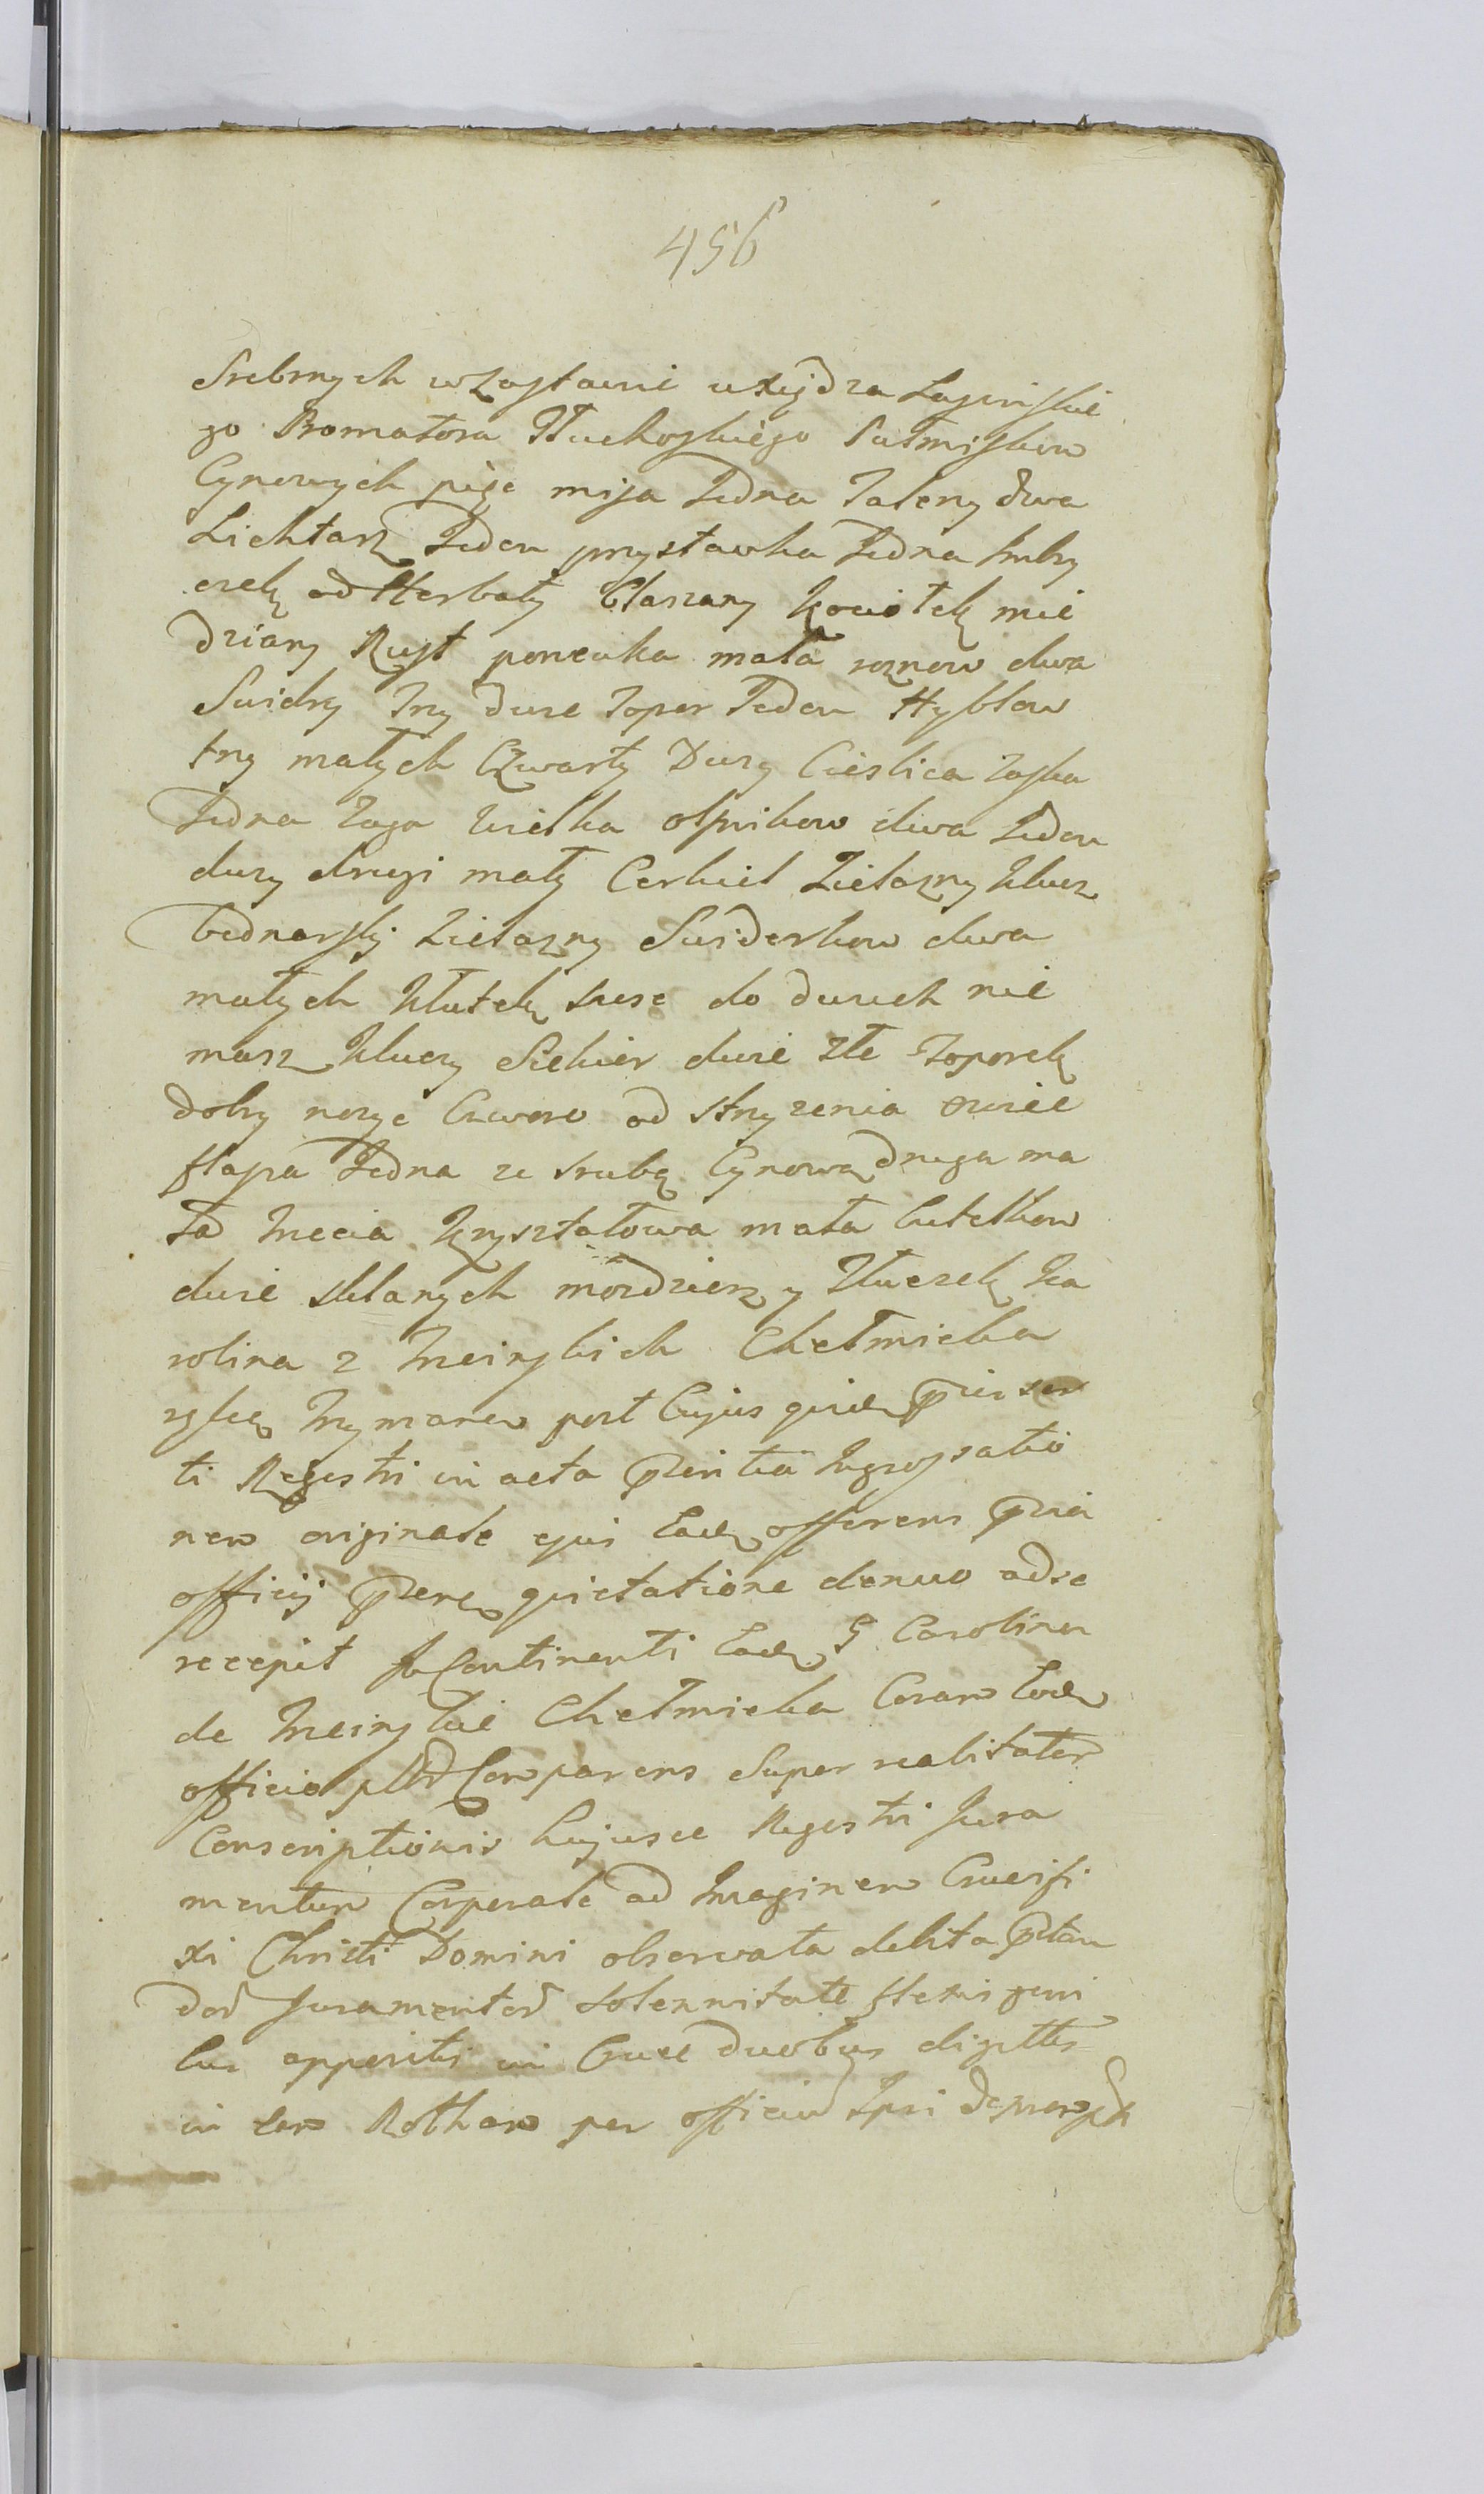 456
Srebrnych w Zastawie u Xiędza Lasinskie
go Promotora Tłuchoskiego Pułmiskow
Cynowych pięc misa Jedna Talerzy dwa
Lichtarz Jeden przystawka Jedna Imbry
czek od Herbaty Blaszany Kociołek mie
dziany Rust ponewka mała roznow dwa
Swidry Trzy duze Topor Jeden Hyblow
trzy małych Czwarty Duzy Cieslica Laska
Jedna Zaga wielka osnikow dwa Jeden
duzy drugi mały Cerkiel Zielazny klucz
bednarski Zielazny Swiderkow dwa
małych Kłutek szesc do dwuch nie
masz kluczy Siekier dwie złe Toporek
dobry nozyc Czworo od strzyzenia owiec
flasza Jedna ze srubą Cynową druga ma
ła trzecia krysztalowa mała butelkow
dwie sklanych mozdzierz y Tłuczek Ka
rolina z Trzcinskich Chełmicka
post Cujus quidem pnser
ti Regestri in acta pntia Ingrossatio
nem originale ejus Eadem offerens pria
officij pnens quietatione denuo ad se
recepit In Continenti Eadem G Carolina
de Trzcinskie Chełmicka Coram Eodem
officio pltr Comparens Super realitatem
Conscriptionis hujusce Regestri Jura
mentum Corporale ad Imaginem Crucifi
xi Christi Domini observata debita pstan
dor Juramentor solennitate flexis geni
bus appositis in Cruce duobus digitis
in eam Rotham per officium Ipsi